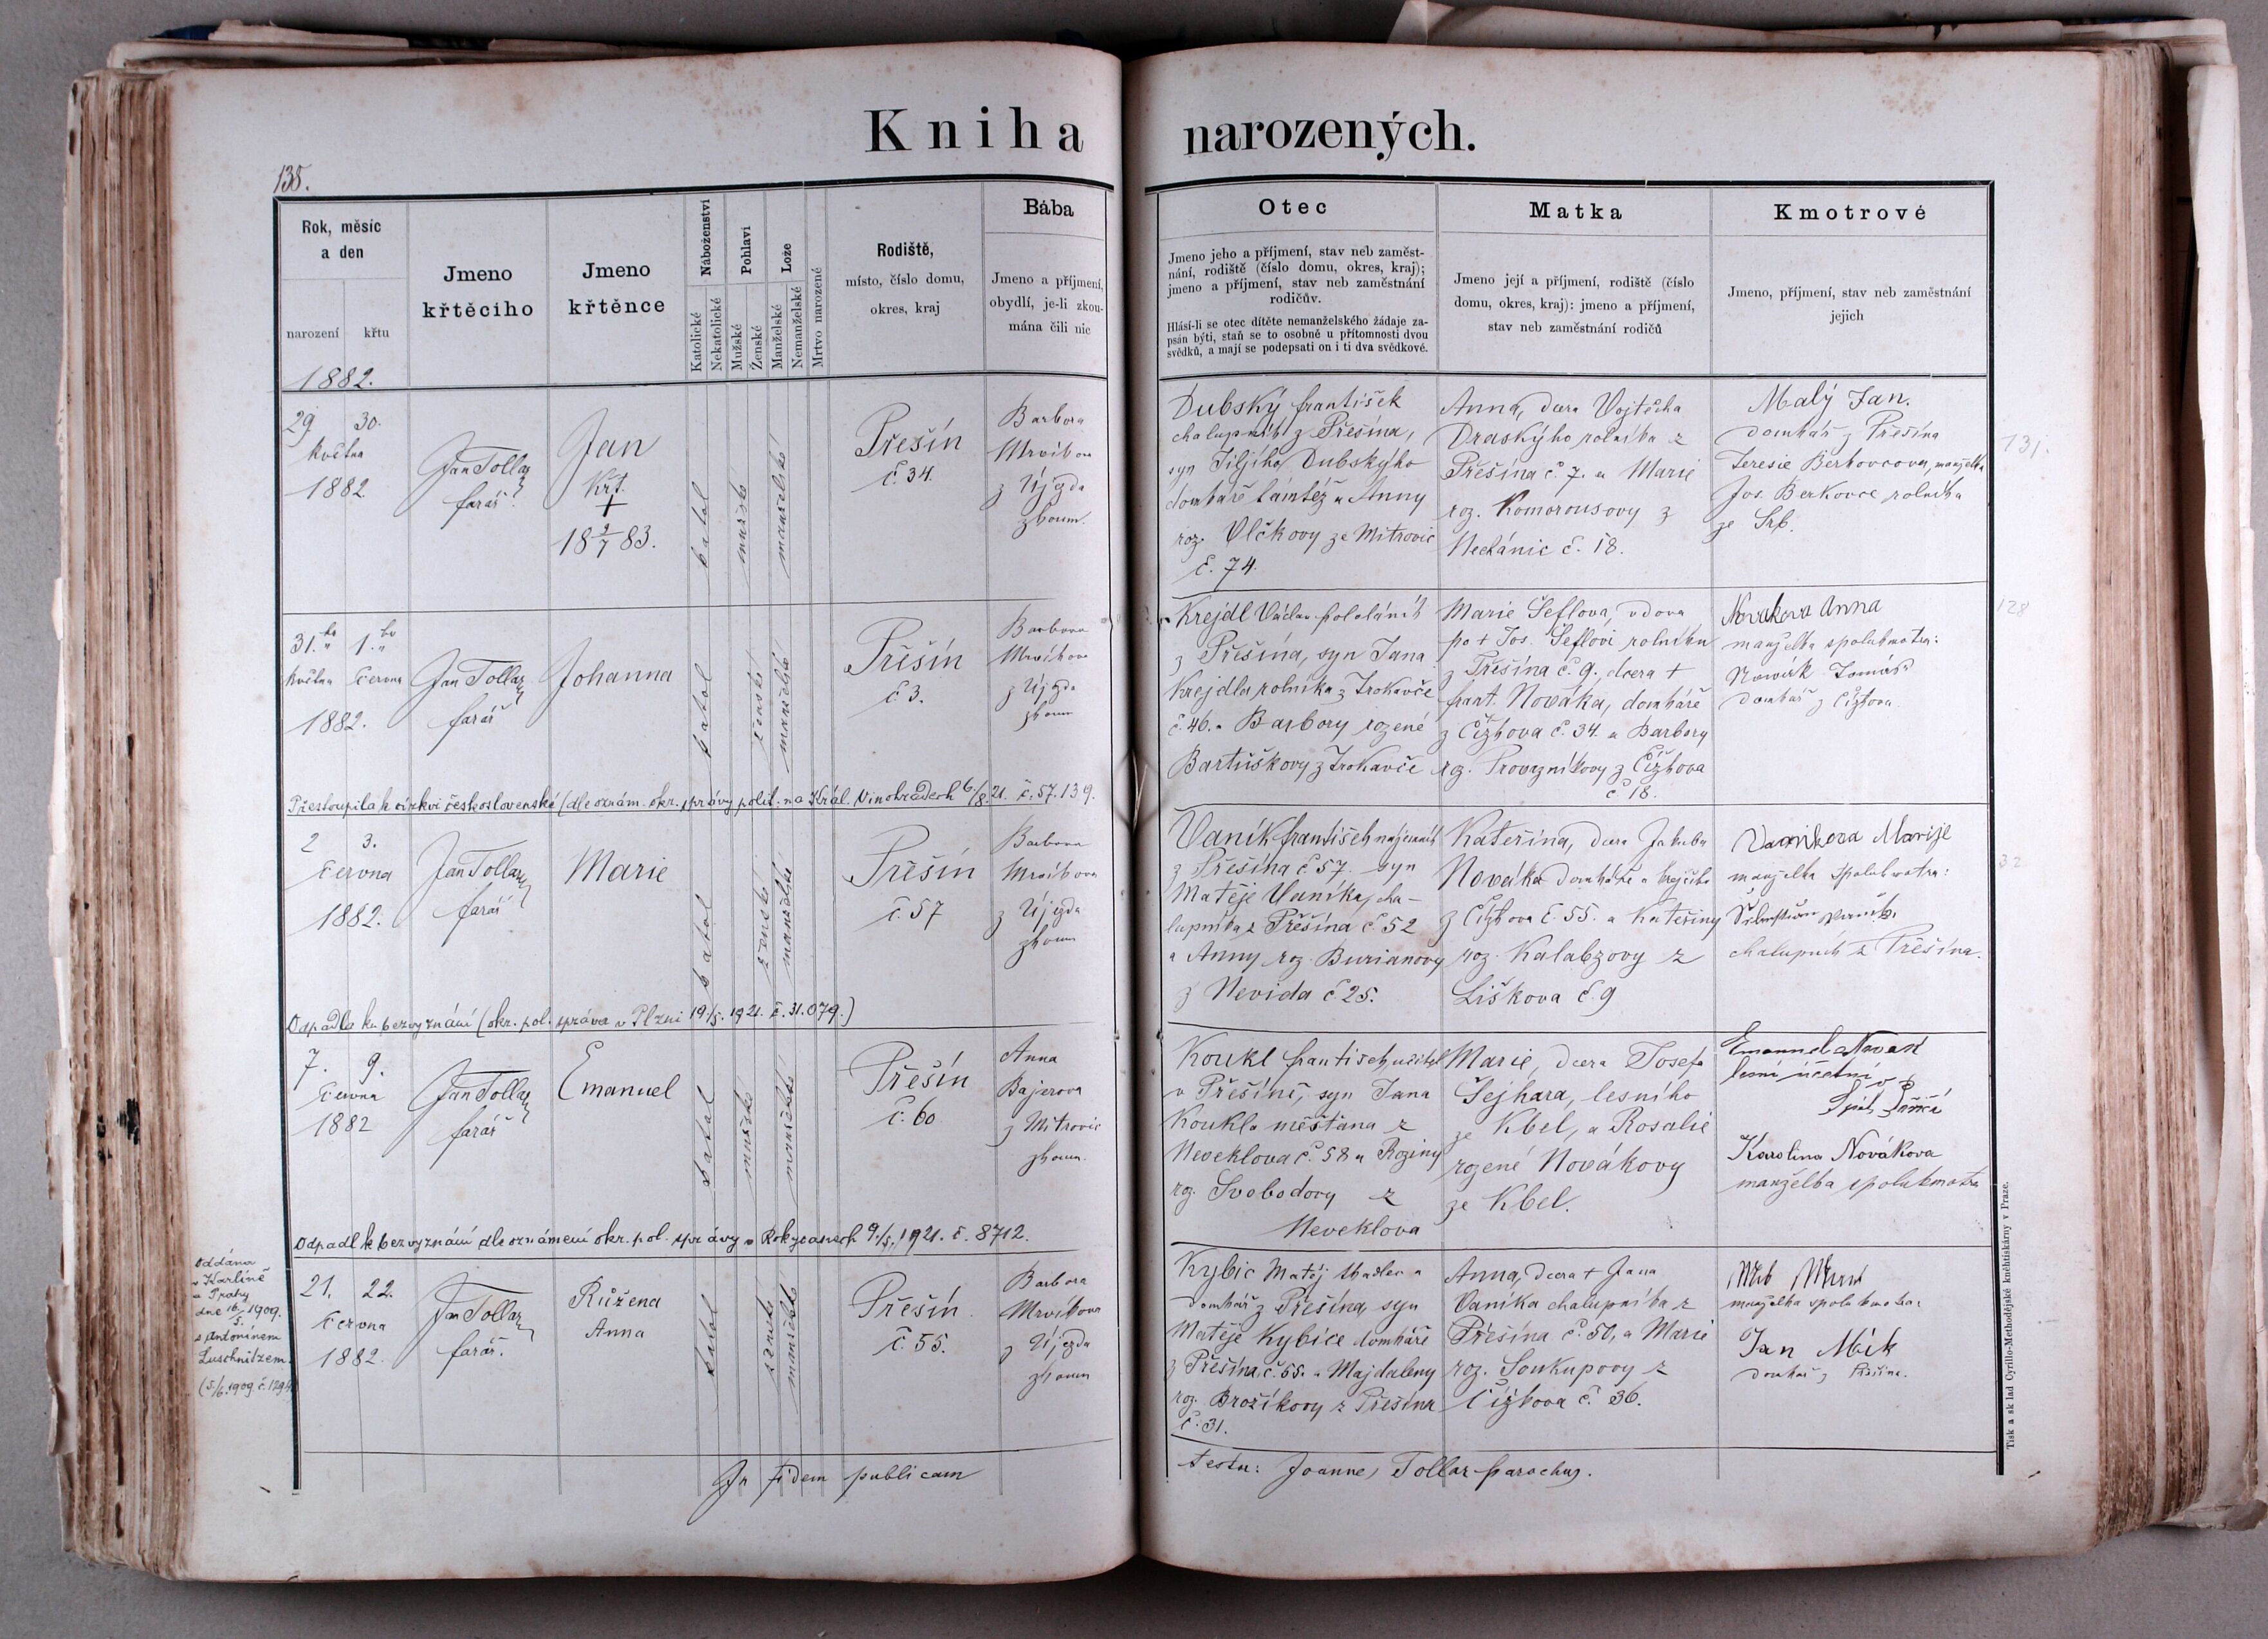 Kniha narozených.
135.
Rok, měsíc
a den
narození
křtu
1882.
Jmeno
křtěcího
Jmeno
křtěnce
Náboženství
Katolické
Nekatolické
Pohlaví
Mužské
Ženské
Lože
Manželské
Nemanželské
Mrtvo narozené
Rodiště,
místo, číslo domu,
okres, kraj
Bába
Jmeno a příjmení,
obydlí, je-li zkou-
mána čili nic
Otec
Jmeno jeho a příjmení, stav neb zaměst-
nání, rodiště (číslo domu, okres, kraj);
jmeno a příjmení, stav neb zaměstnání
rodičův.
Hlásí-li se otec dítěte nemanželského žádaje za-
psán býti, staň se to osobně u přítomnosti dvou
svědků, a mají se podepsati on i ti dva svědkové.
Matka
Jmeno její a příjmení, rodiště (číslo
domu, okres, kraj): jmeno a příjmení,
stav neb zaměstnání rodičů
Kmotrové
Jmeno, příjmení, stav neb zaměstnání
jejich
29 30.
května
1882
Jan Tollar
farář
Jan
Křt.
+
18 2/7 83.
katol
mužské
manželské
Přešín
č. 34.
Barbora
Mrvíkova
z Újezda
zkoum.
Dubský František
chalupník z Přešína,
syn Jiljího Dubskýho
domkáře tamtéž a Anny
roz. Vlčkovy ze Mitrovic
č. 74.
Anna, dcera Vojtěcha
Draskýho rolníka z
Přešína č. 7. a Marie
roz. Komorousovy z
Nechánic č. 18.
Malý Jan.
domkář z Přešína
Teresie Berkovcova, manželka
Jos. Berkovce rolníka
ze Srb.
131.
31.ho 1.ho
května června
1882.
Jan Tollar
farář
Johanna
katol
ženské
manželské
Přešín
č 3.
Barbora
Mrvíkova
z Újezda
zkoum
Krejdl Václav pololáník
z Přešína, syn Jana
Krejdla rolníka z Trokavče
č. 46. a Barbory rozené
Bartůškovy z Trokavče
Marie Šeflova, vdova
po + Jos. Šeflovi rolníku
z Přešína č. 9. dcera +
frant. Nováka, domkáře
z Čížkova č. 34. a Barbory
rz. Provazníkovy z Čížkova
č. 18.
Novakova Anna
manželka spolukmotra:
Nowák Tomáš
domkář z Čížkova
128
Přestoupila k církvi československé (dle oznám. okr. správy polit. na Král. Vinohradech 6./8. 21. č. 57.139.
2 3.
června
1882.
Jan Tollar
farář
Marie
katol
ženské
manželské
Přešín
č. 57
Barbora
Mrvíkova
z Újezda
zkoum
Vaník František nájemník
z Přešína č. 57. syn
Matěje Vaníka, cha-
lupníka z Přešína č. 52
a Anny roz. Burianovy
z Nevida č. 25.
Kateřina, dcera Jakuba
Nováka domkáře a krejčího
z Čížkova č. 55. a Kateřiny
roz. Kalabzovy z
Liškova č. 9
Vanikova Marije
manželka spolukmotra:
chalupník z Přešína.
32
Odpadla ku bezvyznání (okr. pol. správa v Plzni 19./5. 1921. č. 31.079.)
7. 9.
června
1882
Jan Tollar
farář
Emanuel
katol
mužské
manželské
Přešín
č. 60
Anna
Bajerova
z Mitrovic
zkoum.
Koukl František, učitel
v Přešíně, syn Jana
Koukla měšťana z
Neveklova č. 58 a Roziny
rz. Svobodovy z
Neveklova
Marie, dcera Josefa
Šejhara, lesního
ze Kbel, a Rosalie
rozené Novákovy
ze Kbel.
Emanuel Novák
lesní účetní v
Karolina Nóvákova
manželka spolukmotra
Odpadl k bezvyznání dle oznámení okr. pol. správy v Rokycanech 9./5. 1921. č. 8712.
Oddána
v Karlíně
u Prahy
dne 16./5. 1909.
s Antonínem
Luschnitzem
(5/6. 1909. č. 129
21. 22.
června
1882.
Jan Tollar
farář.
Růžena
Anna
katol
ženské
manželské
Přešín
č. 55.
Barbora
Mrvíkova
z Újezda
zkoum
Kybic Matěj tkadlec a
domkář z Přešína, syn
Matěje Kybice domkáře
z Přešína č. 55. a Majdaleny
roz. Brožíkovy z Přešína
č. 31.
Anna, dcera + Jana
Vaníka chalupníka z
Přešína č. 50, a Marie
roz. Soukupovy z
Čížkova č. 36.
manželka spolukmotra:
Jan Mik
domkář z Přešína.
In fidem publicam
testor: Joannes Tollar parochus.
Tisk a sklad Cyrillo-Methodějské knihtiskárny v Praze.